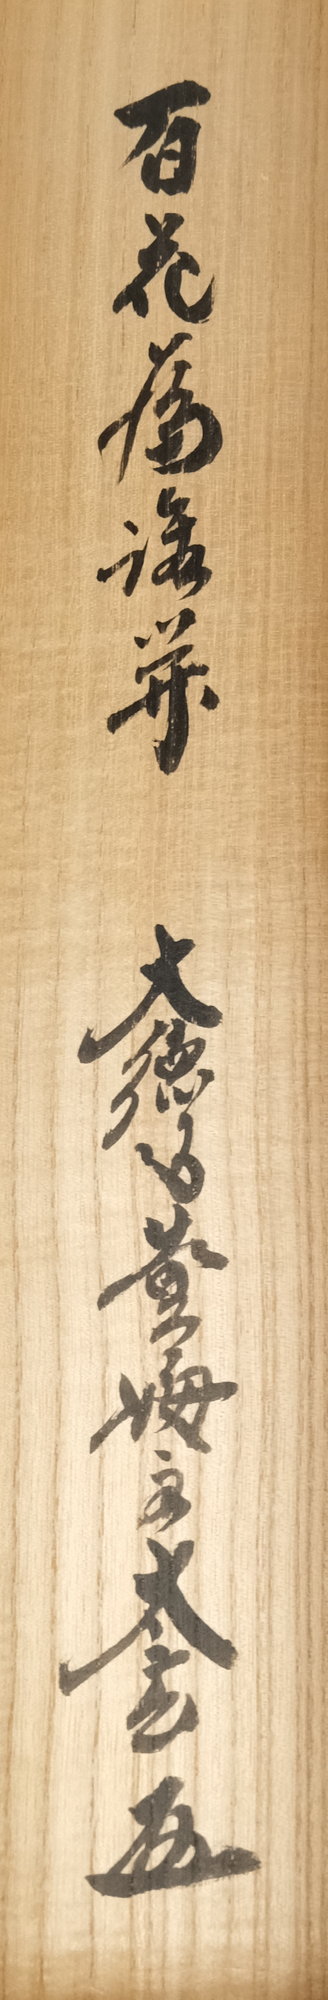 百花為誰開　大徳寺黄梅主太玄